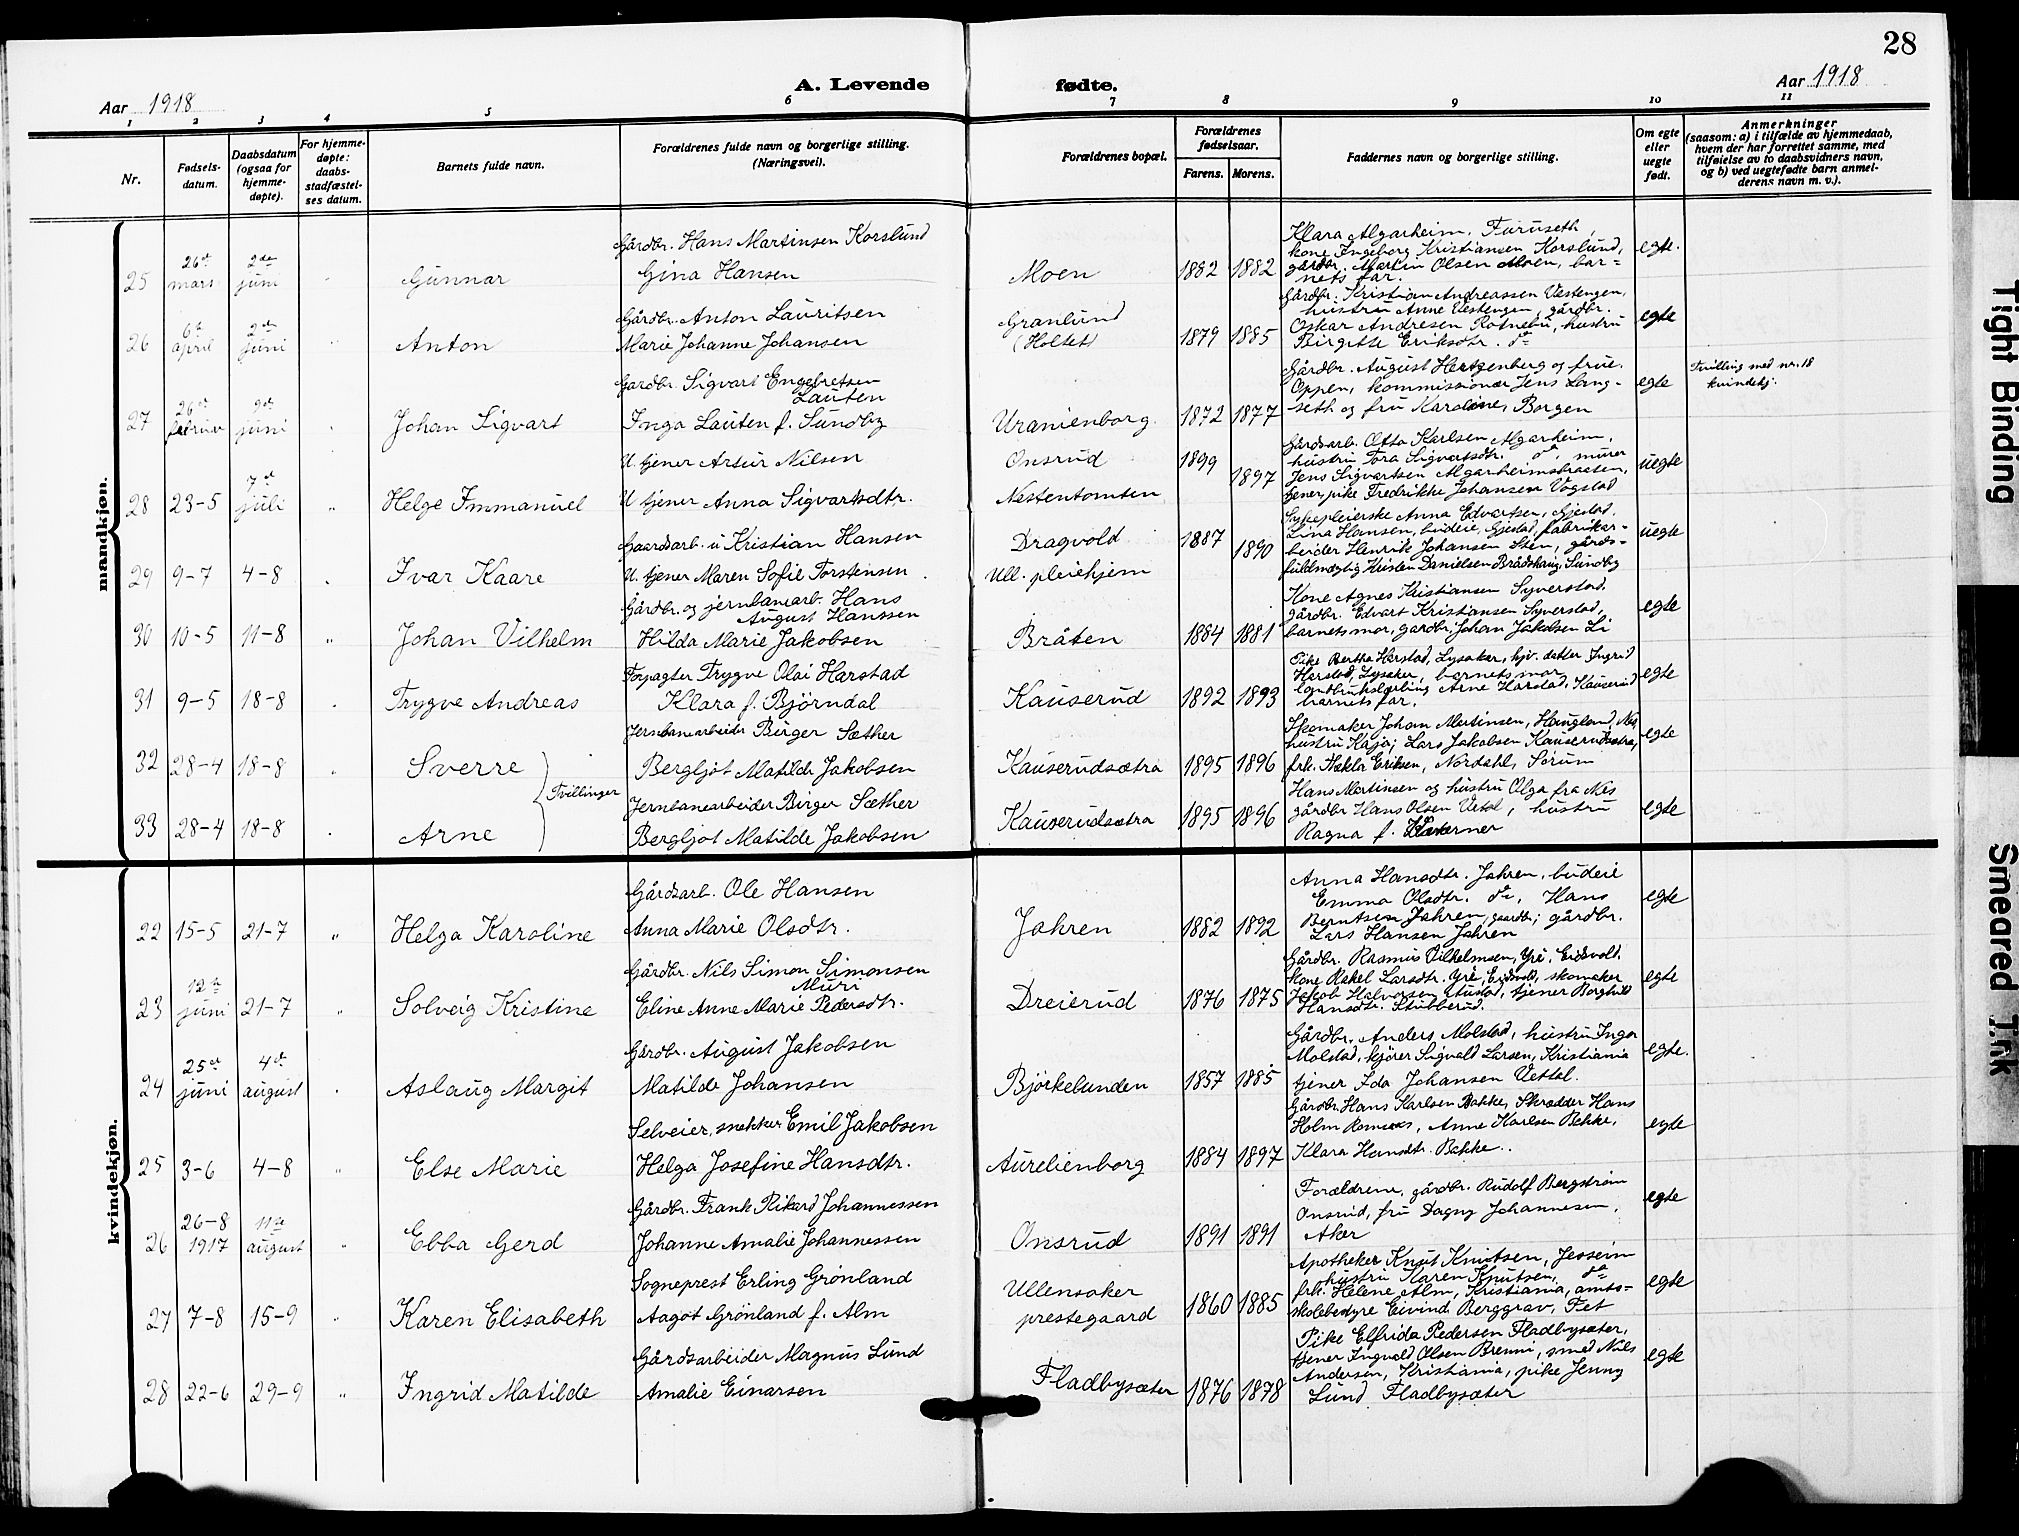 28
A. Levende fødte.
Aar 1918
Aar 1918
1 2 3 4 5 6 7 8 9 10 11
Nr.
Fødsels-
datum.
Daabsdatum
(ogsaa for
hjemme-
døpte).
For hjemme-
døpte:
daabs-
stadfæstel-
ses datum.
Barnets fulde navn.
Forældrenes fulde navn og borgerlige stilling.
(Næringsvei).
Forældrenes bopæl.
Forældrenes
fødselsaar.
Farens. Morens.
Faddernes navn og borgerlige stilling.
Om egte
eller
uegte
født.
Anmerkninger
(saasom: a) i tilfælde av hjemmedaab,
hvem der har forrettet samme, med
tilføielse av to daabsvidners navn,
og b) ved uegtefødte barn anmel-
derens navn m. v.).
mandkjøn.
25 26de mars 2den juni " Gunnar
Gårdbr. Hans Martinsen Korslund
Gina Hansen
Moen 1882 1882
Klara Algarheim, Furuseth,
kone Ingeborg Kristiansen Korslund,
gårdbr. Martin Olsen Moen, bar-
nets far.
egte.
26 6te april 2den juni " Anton
Gårdbr. Anton Lauritsen
Marie Johanne Johansen
Granlund
(Holtet)
1879 1885
Gårdbr. Kristian Andreassen Vestengen,
hustru Anne Vestengen, gårdbr.
Oskar Andresen Rotnebu, hustru
Birgitte Eriksdtr. do
egte
27 26de februar 9de juni " Johan Sigvart
Gardbr. Sigvart Engebretsen
Lauten
Inga Lauten f. Sundby
Uranienborg 1872 1877
Gårdbr. August Hertzenberg og frue
Oppen, kommissionær Jens Lang-
seth og fru Karoline, Borgen
egte
Tvilling med nr. 18
kvindekj.
28 23-5 7de juli " Helge Immanuel
U. tjener Artur Nilsen
U tjener Anna Sigvartsdtr.
Onsrud
Nestentomten
1899
1897
Gårdsarb. Otto Karlsen Algarheim,
hustru Tora Sigvartsdtr. do, murer
Jens Sigvartsen Algarheimstraeten,
tjener, pike Fredrikke Johansen Vogstad
uegte
29 9-7 4-8 " Ivar Kaare
Gaardsarb. u Kristian Hansen
U. tjener Maren Sofie Torstensen
Dragvold
Ull. pleiehjem
1887
1890
Sykepleierske Anna Edvartsen, Gjestad,
Lina Hansen, budeie, Gjestad, fabrikar-
beider Henrik Johansen Sten, gårds-
fuldmægtig Kristen Danielsen Brådskaug, Sundby
uegte
30 10-5 11-8 " Johan Vilhelm
Gårdbr. og jernbanearb. Hans
August Hanssen
Hilda Marie Jakobsen
Bråten 1884 1881
Kone Agnes Kristiansen Syverstad,
gårdbr. Edvart Kristiansen Syverstad,
barnets mor, gardbr. Johan Jakobsen Li
egte
31 9-5 18-8 " Trygve Andreas
Forpagter Trygve Olai Harstad
Klara f. Bjørndal
Kauserud 1892 1893
Pike Bertha Harstad, Lysaker, hjv. datter Ingrid
Harstad, Lysaker, barnets mor,
landbrukslærling Arne Harstad, Kauserud
barnets far.
egte
32 28-4 18-8 " Sverre
Jernbanearbeider Birger Sæther
Bergljot Matilde Jakobsen
Kauserudsætra 1895 1896
Skomaker Johan Martinsen, Haugland, Nes,
hustru Kaja; Lars Jakobsen Kauserudsætra,
frk. Hekla Eriksen, Nordahl, Sørum
egte
Tvillinger
33 28-4 18-8 " Arne
Jernbanearbeider Birger Sæther
Bergljot Matilde Jakobsen
Kauserudsætra 1895 1896
Hans Martinsen og hustru Olga fra Nes
gårdbr Hans Olsen Vetal, hustru
Ragna f.
egte
kvindekjøn.
22 15-5 21-7 " Helga Karoline
Gårdsarb. Ole Hansen
Anna Marie Olsdtr.
Jahren 1882 1892
Anna Hansdtr. Jahren, budeie
Emma Olsdtr. do, Hans
Berntsen Jahren, gaardbr; gårdbr.
Lars Hansen Jahren
egte
23 12te juni 21-7 " Solveig Kristine
Gårdbr. Nils Simon Simonsen
Muri
Eline Anne Marie Pedersdtr.
Dreierud 1876 1875
Gårdbr. Rasmus Vilhelmsen, Yri, Eidsvold,
Kone Rakel Larsdtr. Yri, Eidsvold, skomaker
Jakob Halvorsen Stustad, tjener Borghild
Hansdtr. Stubberud.
egte
24 25de juni 4de august " Aslaug Margit
Gårdbr. August Jakobsen
Matilde Johansen
Bjørkelunden 1857 1885
Gårdbr. Anders Molstad, hustru Inga
Molstad, kjører Sigvald Larsen, Kristiania
tjener Ida Johansen Vettal.
egte.
25 3-6 4-8 " Else Marie
Selveier, snekker Emil Jakobsen
Helga Josefine Hansdtr.
Aurelienborg 1884 1897
Gårdbr. Hans Karlsen Bakke, Skrædder Hans
Holm Romsaas, Anne Karlsen Bakke,
Klara Hansdtr. Bakke.
egte
26 26-8 1917 11te august " Ebba Gerd
Gårdbr. Frank Rikard Johannessen
Johanne Amalie Johannessen
Onsrud 1891 1891
Forældrene, gårdbr. Rudolf Bergstrøm
Onsrud, fru Dagny Johannesen,
Aker
egte
27 7-8 15-9 " Karen Elisabeth
Sogneprest Erling Grønland
Aagot Grønland f. Alm
Ullensaker
prestegaard
1860 1885
Apotheker Knut Knutsen, Jessheim
hustru Karen Knutsen, do
frk. Helene Alm, Kristiania, amts-
skolebestyre Eivind Berggrav, Fet
egte
28 22-6 29-9 " Ingrid Matilde
Gårdsarbeider Magnus Lund
Amalie Einarsen
Fladbysæter 1876 1878
Pike Elfrida Pedersen Fladbysæter,
tjener Ingvald Olsen Brenni, smed Nils
Andersen, Kristiania, pike Jenny
Lund Fladbysæter
egte
Tight Binding
Smeared Ink